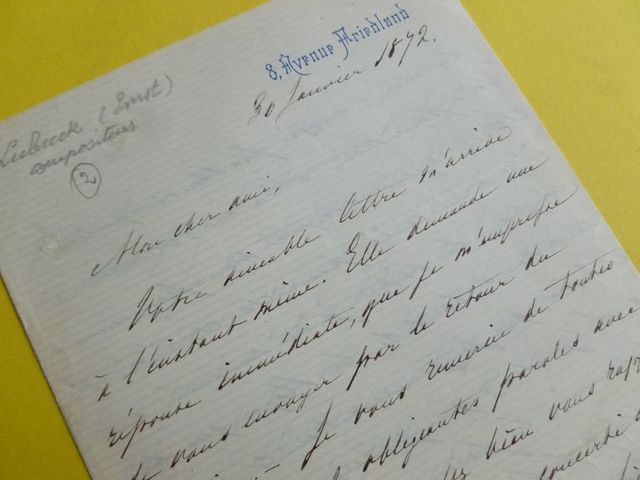 8, Avenue Friedland
30 Janvier 1872.
Lubeck (Ernst)
compositeur
2
Mon cher ami,
Votre aimable lettre m'arrive
à l'instant même. Elle demande une
réponse immédiate, que je m'empresse
de vous envoyer par le retour du
Je vous remercie de toutes
obligeantes paroles avec
bien vous rap
concerté